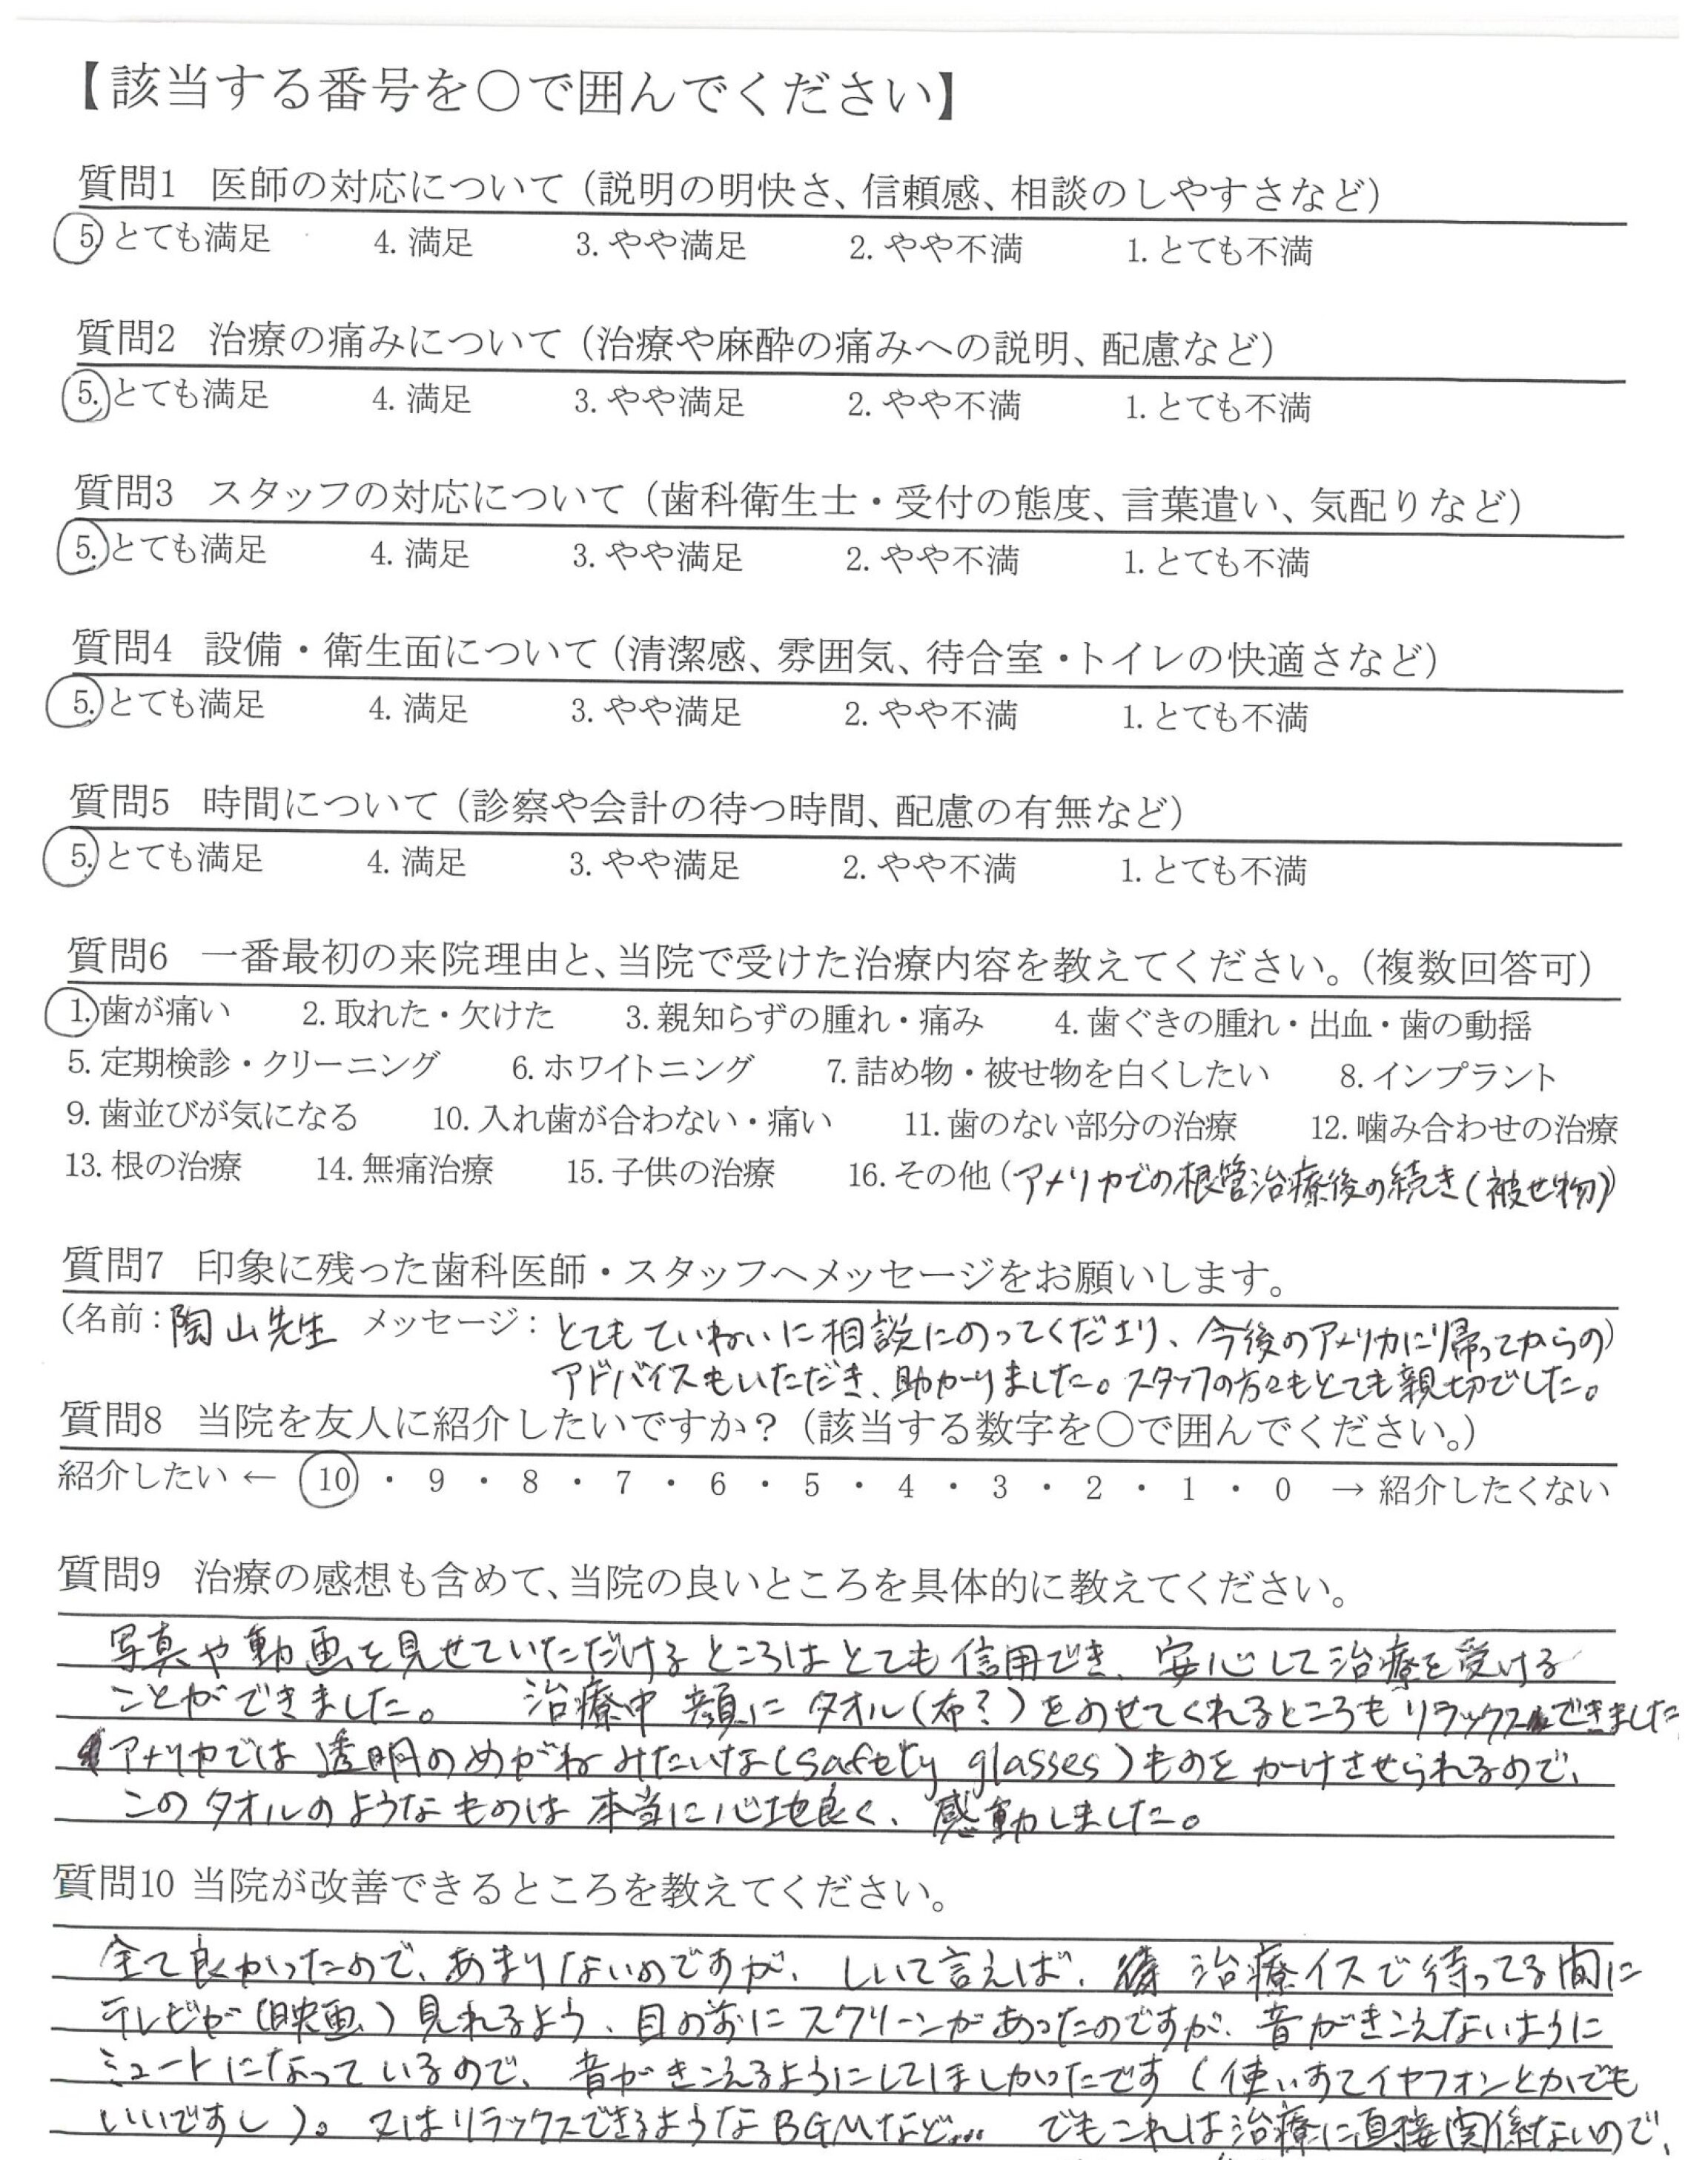 【該当する番号を〇で囲んでください】
質問1 医師の対応について（説明の明快さ、信頼感、相談のしやすさなど）
5. とても満足 4. 満足 3. やや満足 2. やや不満 1. とても不満
質問2 治療の痛みについて（治療や麻酔の痛みへの説明、配慮など）
5. とても満足 4. 満足 3. やや満足 2. やや不満 1. とても不満
質問3 スタッフの対応について（歯科衛生士・受付の態度、言葉遣い、気配りなど）
5. とても満足 4. 満足 3. やや満足 2. やや不満 1. とても不満
質問4 設備・衛生面について（清潔感、雰囲気、待合室・トイレの快適さなど）
5. とても満足 4. 満足 3. やや満足 2. やや不満 1. とても不満
質問5 時間について（診察や会計の待つ時間、配慮の有無など）
5. とても満足 4. 満足 3. やや満足 2. やや不満 1. とても不満
質問6 一番最初の来院理由と、当院で受けた治療内容を教えてください。（複数回答可）
1. 歯が痛い 2. 取れた・欠けた 3. 親知らずの腫れ・痛み 4. 歯ぐきの腫れ・出血・歯の動揺
5. 定期検診・クリーニング 6. ホワイトニング 7. 詰め物・被せ物を白くしたい 8. インプラント
9. 歯並びが気になる 10. 入れ歯が合わない・痛い 11. 歯のない部分の治療 12. 噛み合わせの治療
13. 根の治療 14. 無痛治療 15. 子供の治療 16. その他（アメリカでの根管治療後の続き（被せ物））
質問7 印象に残った歯科医師・スタッフへメッセージをお願いします。
（名前：陶山先生 メッセージ：とてもていねいに相談にのってくださり、今後のアメリカに帰ってからの）
アドバイスもいただき、助かりました。スタッフの方々もとても親切でした。
質問8 当院を友人に紹介したいですか？（該当する数字を〇で囲んでください。）
紹介したい ← 10 ・ 9 ・ 8 ・ 7 ・ 6 ・ 5 ・ 4 ・ 3 ・ 2 ・ 1 ・ 0 → 紹介したくない
質問9 治療の感想も含めて、当院の良いところを具体的に教えてください。
写真や動画を見せていただけるところはとても信用でき、安心して治療を受ける
ことができました。 治療中 顔に タオル（布？）をのせてくれるところもリラックスできました
アメリカでは透明のめがねみたいな（safety glasses）ものをかけさせられるので、
このタオルのようなものは本当に心地良く、感動しました。
質問10 当院が改善できるところを教えてください。
全て良かったので、あまりないのですが、しいて言えば、治療イスで待ってる間に
テレビが（映画）見れるよう、目の前にスクリーンがあったのですが、音がきこえないように
ミュートになっているので、音がきこえるようにしてほしかったです（使いすてイヤフォンとかでも
いいですし）。又はリラックスできるようなBGMなど… でもこれは治療に直接関係ないので、